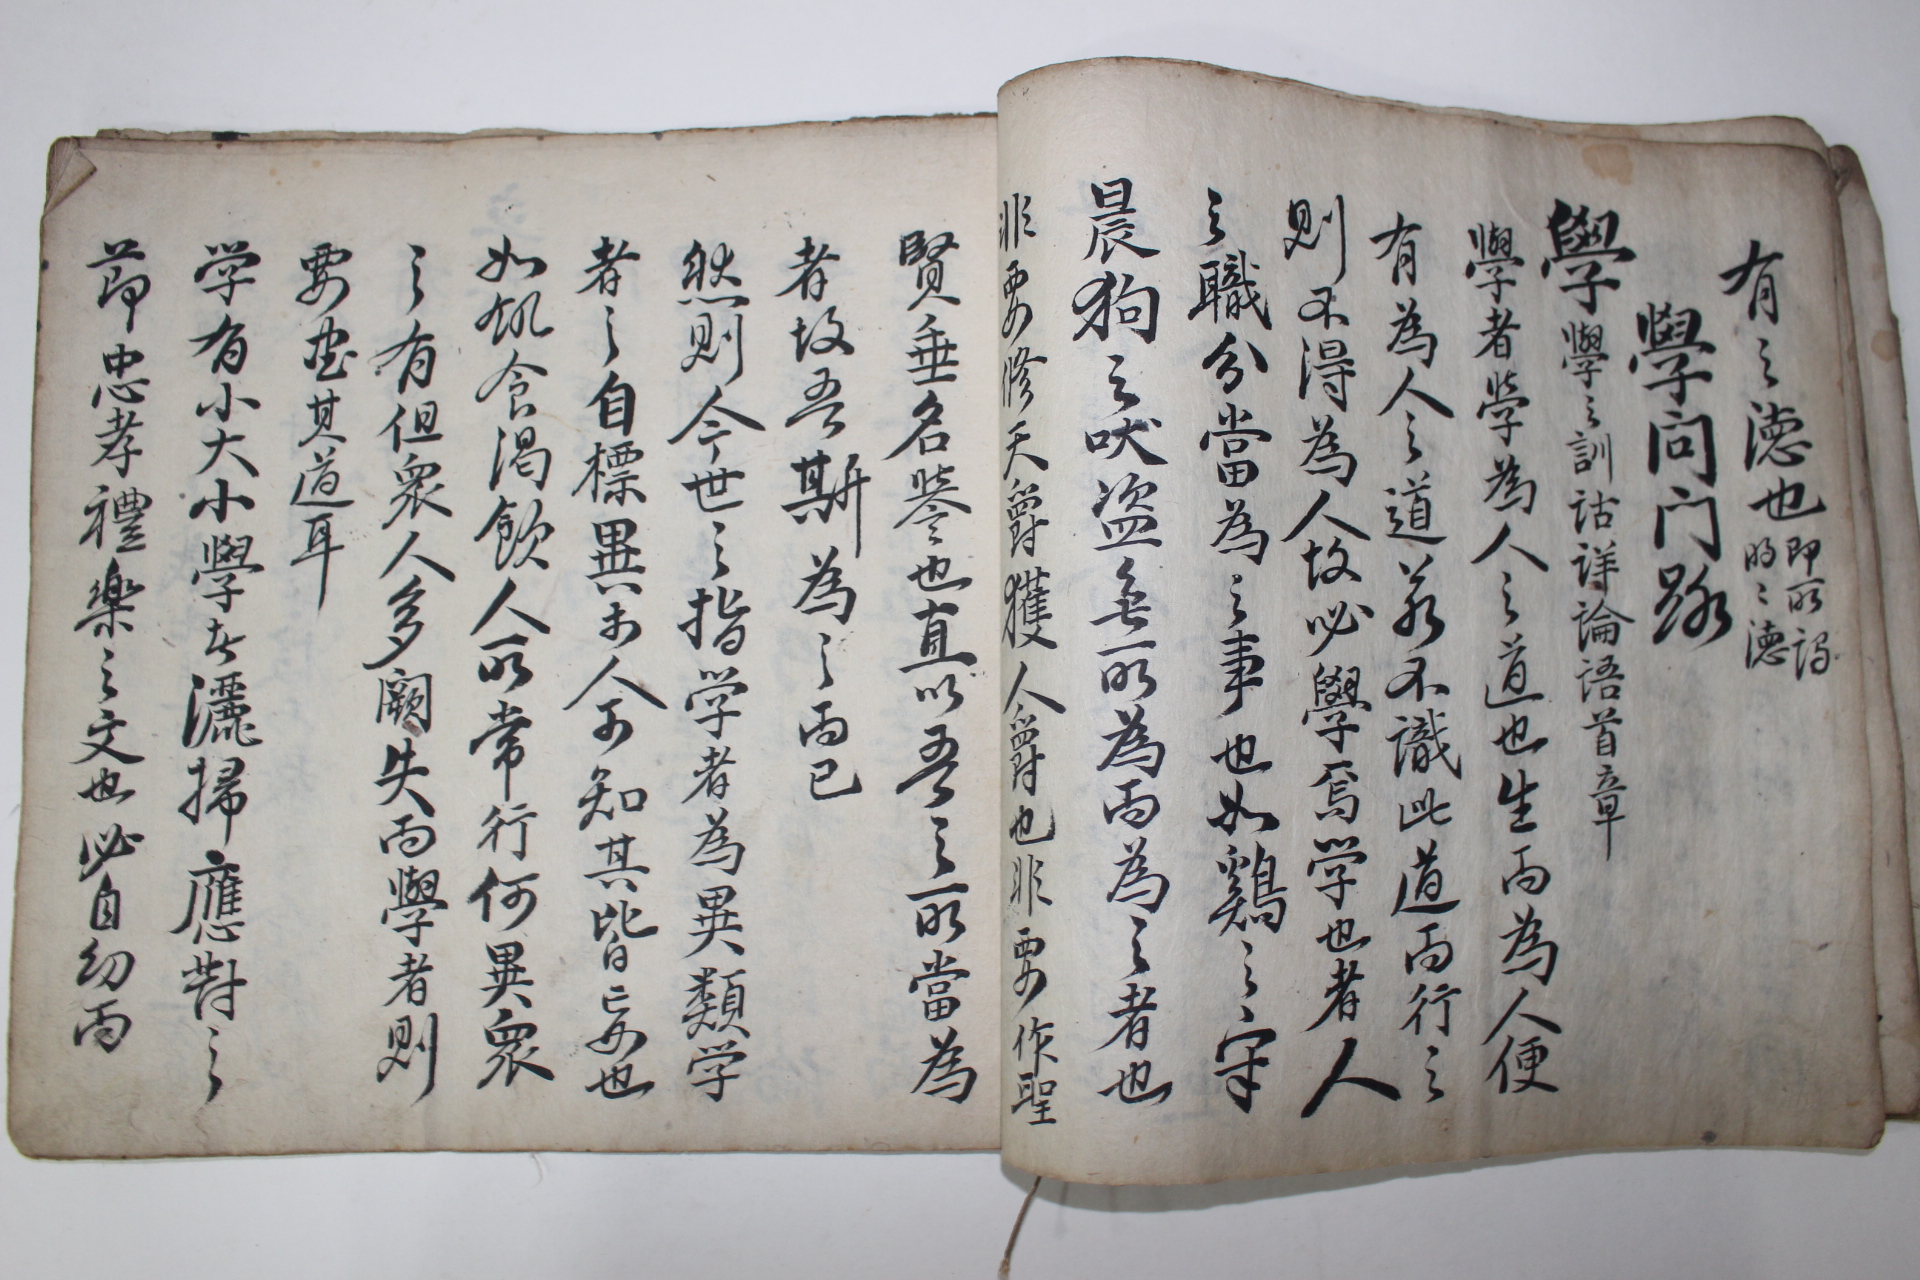 有之德也即所謂明々德
學問門路
學學之訓詁詳論語首章
學者學為人之道也生而為人便
有為人之道若不識此道而行之
則不得為人故必學焉学也者人
之職分當為之事也如鷄之
晨狗之吠盗無所為而為之者也
非要修天爵獲人爵也非要作聖
賢垂名譽也直以吾之所當為
者故吾斯為之而已
然則今世之指学者為異類学
者之自標異於人不知其皆妄也
如飢食渴飲人所常行何異衆
之有但衆人多闕失而學者則
要盡其道耳
学有小大小學者灑掃應對之
節忠孝禮樂之文也必自幼而